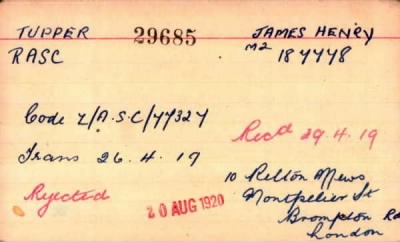 TUPPER 29685 JAMES HENRY
RASC M2 187778
Code Z/A.S.C/77327
Recd 29.4.19
Trans 26.4.19
Rejected
20 AUG 1920
10 Relton Mews
Montpelier St
Brompton Rd
London